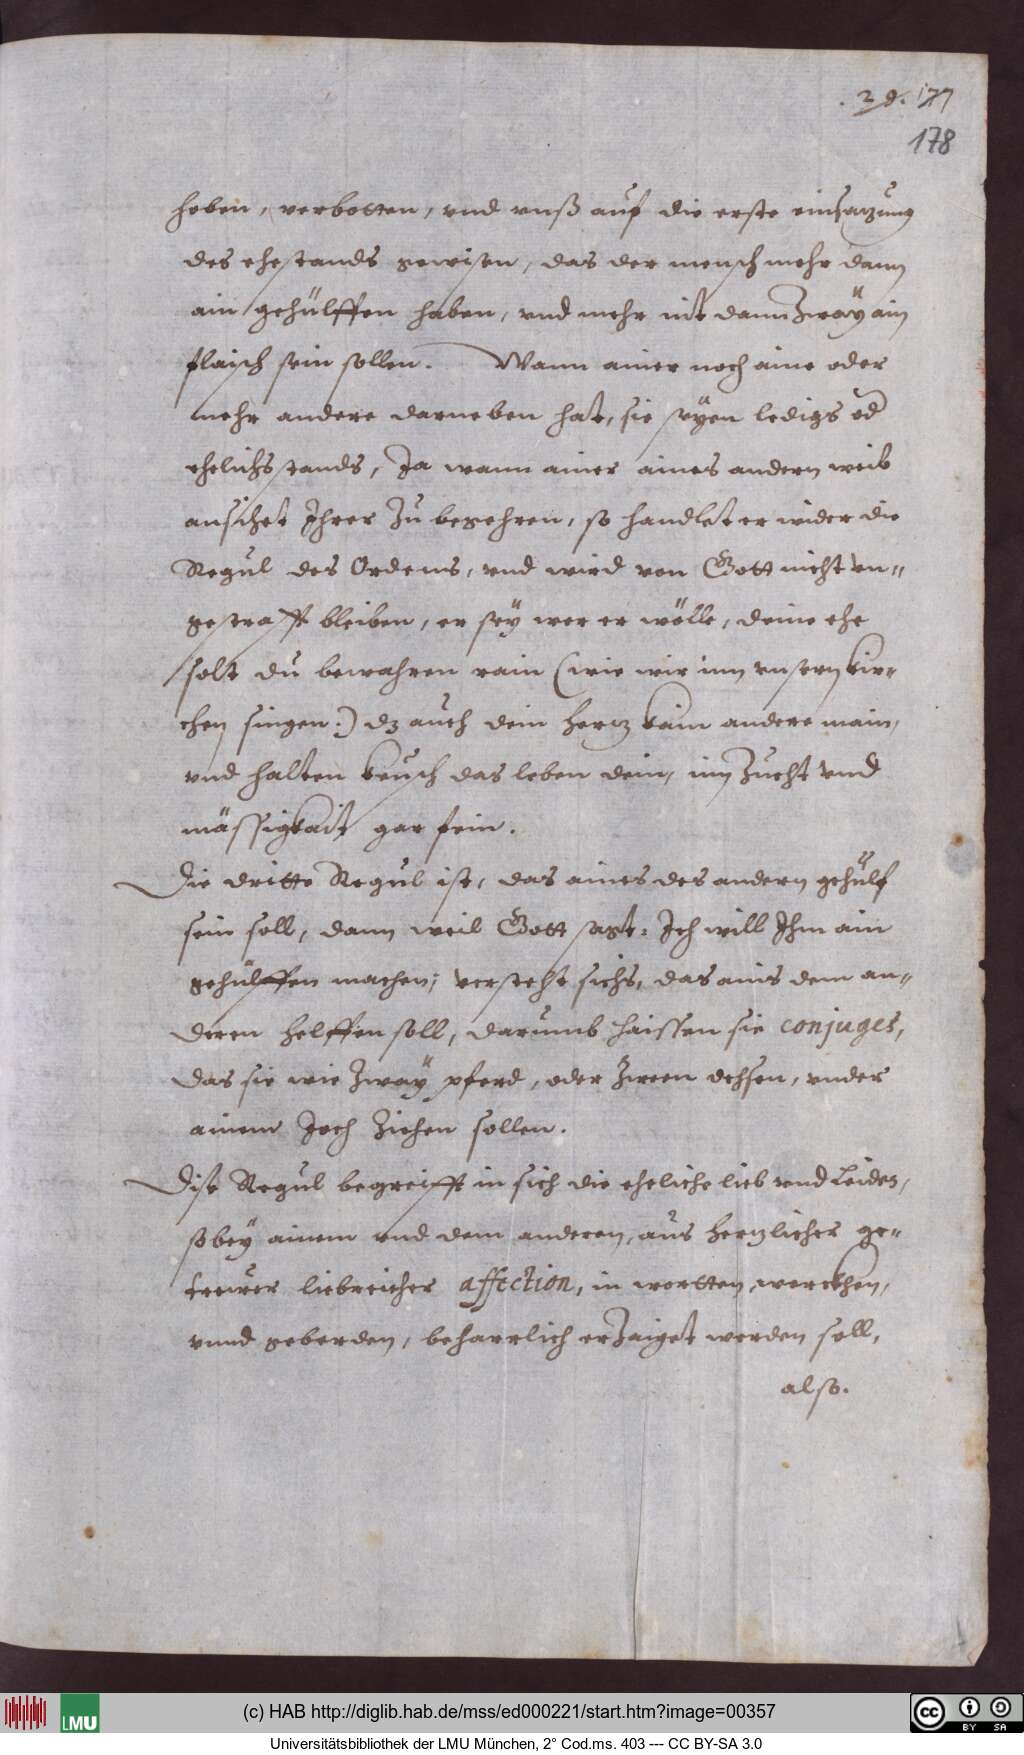 . 29. 177
178
hoben, verbotten, vnd vnß auf die erste einsatzung
des ehestands gewisen, das der mensch mehr dann
ain gehülffen haben, vnd mehr nit dann Zwaÿ ain
flaisch sein sollen. Wann ainer noch aine oder
mehr andere darneben hat, sie seÿen ledigs od
ehelichs stands, Ja wann ainer aines andern weib
ansihet Ihrer Zu begehren, so handlet er wider die
Regul des Ordens, vnd wird von Gott nicht vn-
gestrafft bleiben, er seÿ wer er wölle, deine ehe
solt du bewahren rain (wie wir inn vnsern kir-
chen singen.) dz auch dein hertz kain andere main,
vnd halten keusch das leben dein, inn Zucht vnd
mässigkait gar fein.
Die dritte Regul ist, das aines des andern gehülf
sein soll, dann weil Gott sagt: Ich will Ihm ain
gehülffen machen; versteht sichs, das ains dem an-
deren helffen soll, darumb haissen sie conjuges,
das sie wie Zwaÿ pferd, oder Zween ochsen, vnder
ainem Joch Ziehen sollen.
Dise Regul begreifft in sich die eheliche lieb vnd Leiden,
so beÿ ainem vnd dem anderen, aus hertzlicher ge-
trewer liebreicher affection, in wortten, werckhen,
vnnd geberden, beharrlich erZaiget werden soll,
also.
(c) HAB http://diglib.hab.de/mss/ed000221/start.htm?image=00357
LMU
cc BY SA
Universitätsbibliothek der LMU München, 2° Cod.ms. 403 --- CC BY-SA 3.0